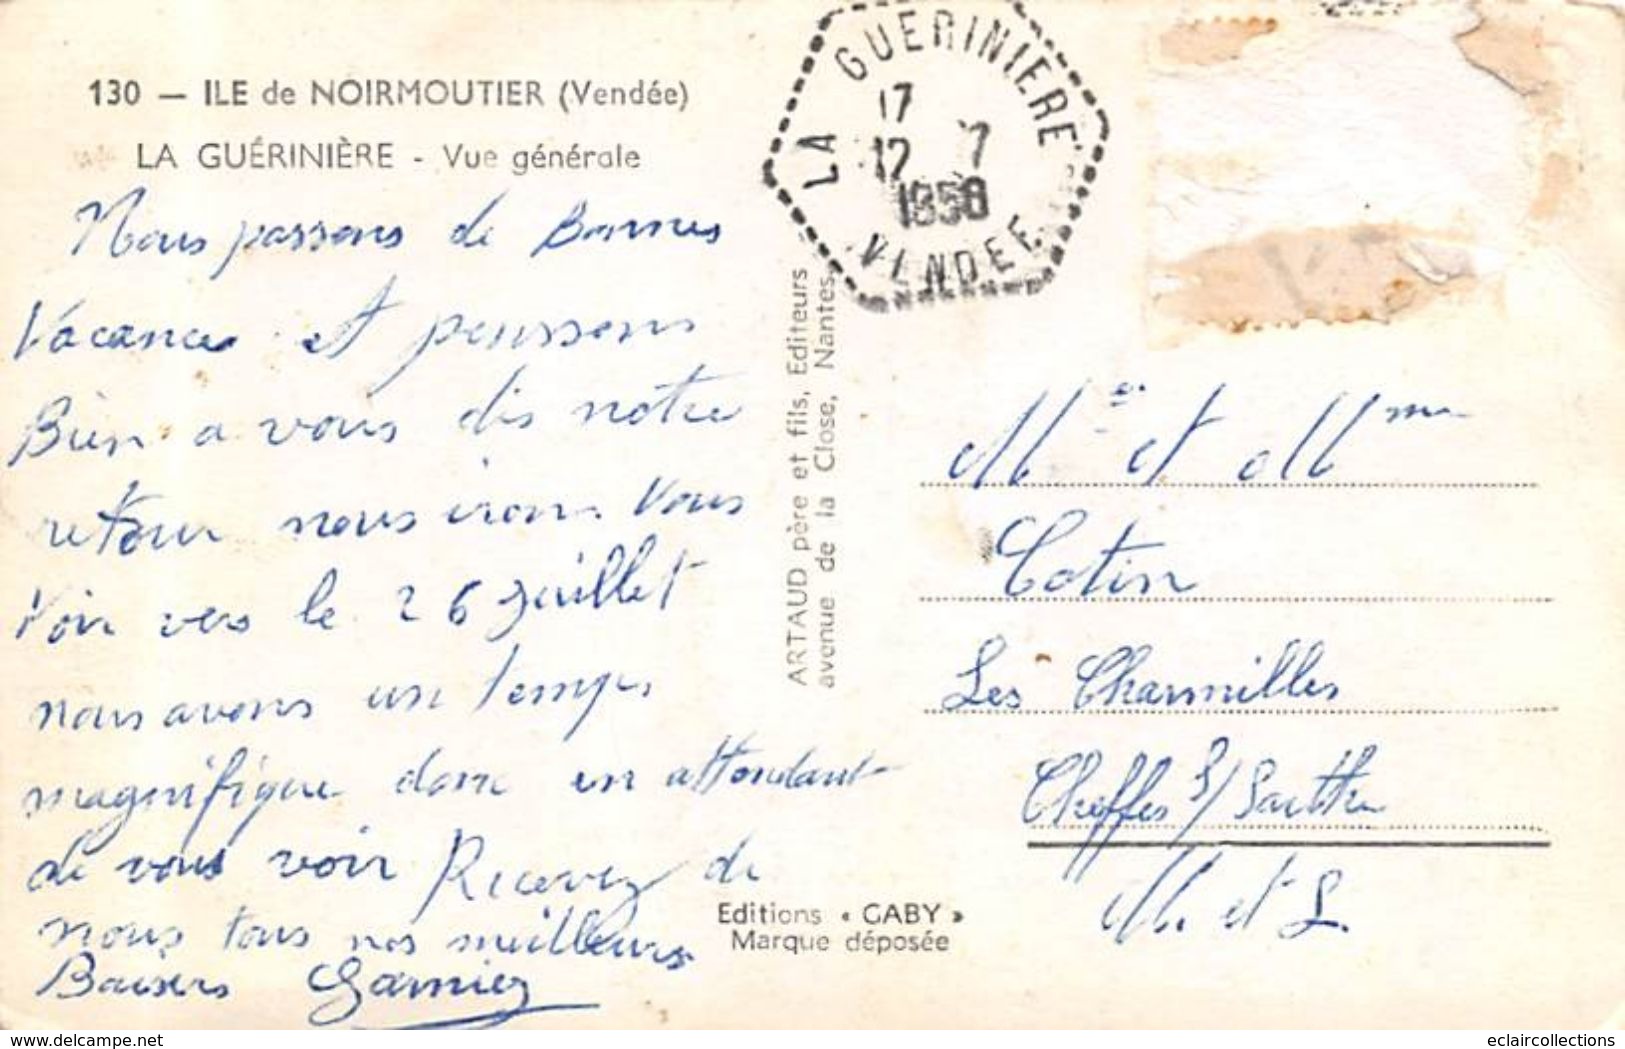 130 — ILE de NOIRMOUTIER (Vendée)
LA GUÉRINIÈRE - Vue générale
Nous passons de Bonnes
Vacances et penssons
Bien a vous dis notre
retour nous irons Vous
Voir vers le 26 Juillet
nous avons un temps
magnifique donc en attendant
de vous voir Recevez de
nous tous nos meilleurs
Baisers Garnier
LA GUERINIERE
17
12 7
1958
VENDEE
ARTAUD père et fils, Editeurs
avenue de la Close, Nantes
Editions « GABY »
Marque déposée
Mr et Mme
Cotin
Les Charmilles
Cheffes s/ Sarthe
M. et L.
www.delcampe.net
eclaircollections